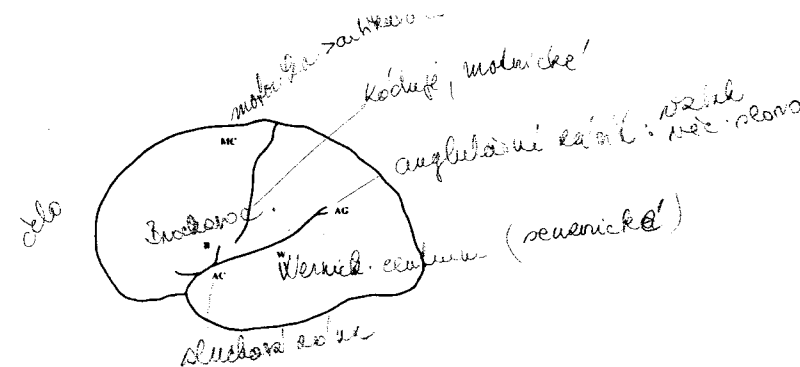 motorika
kóduje, motorické
MC
angulární závit: vztah
věc-slovo
čelo
Brockovo c.
AG
B
W
Wernick. centrum (senzorické)
AC
sluchová zóna